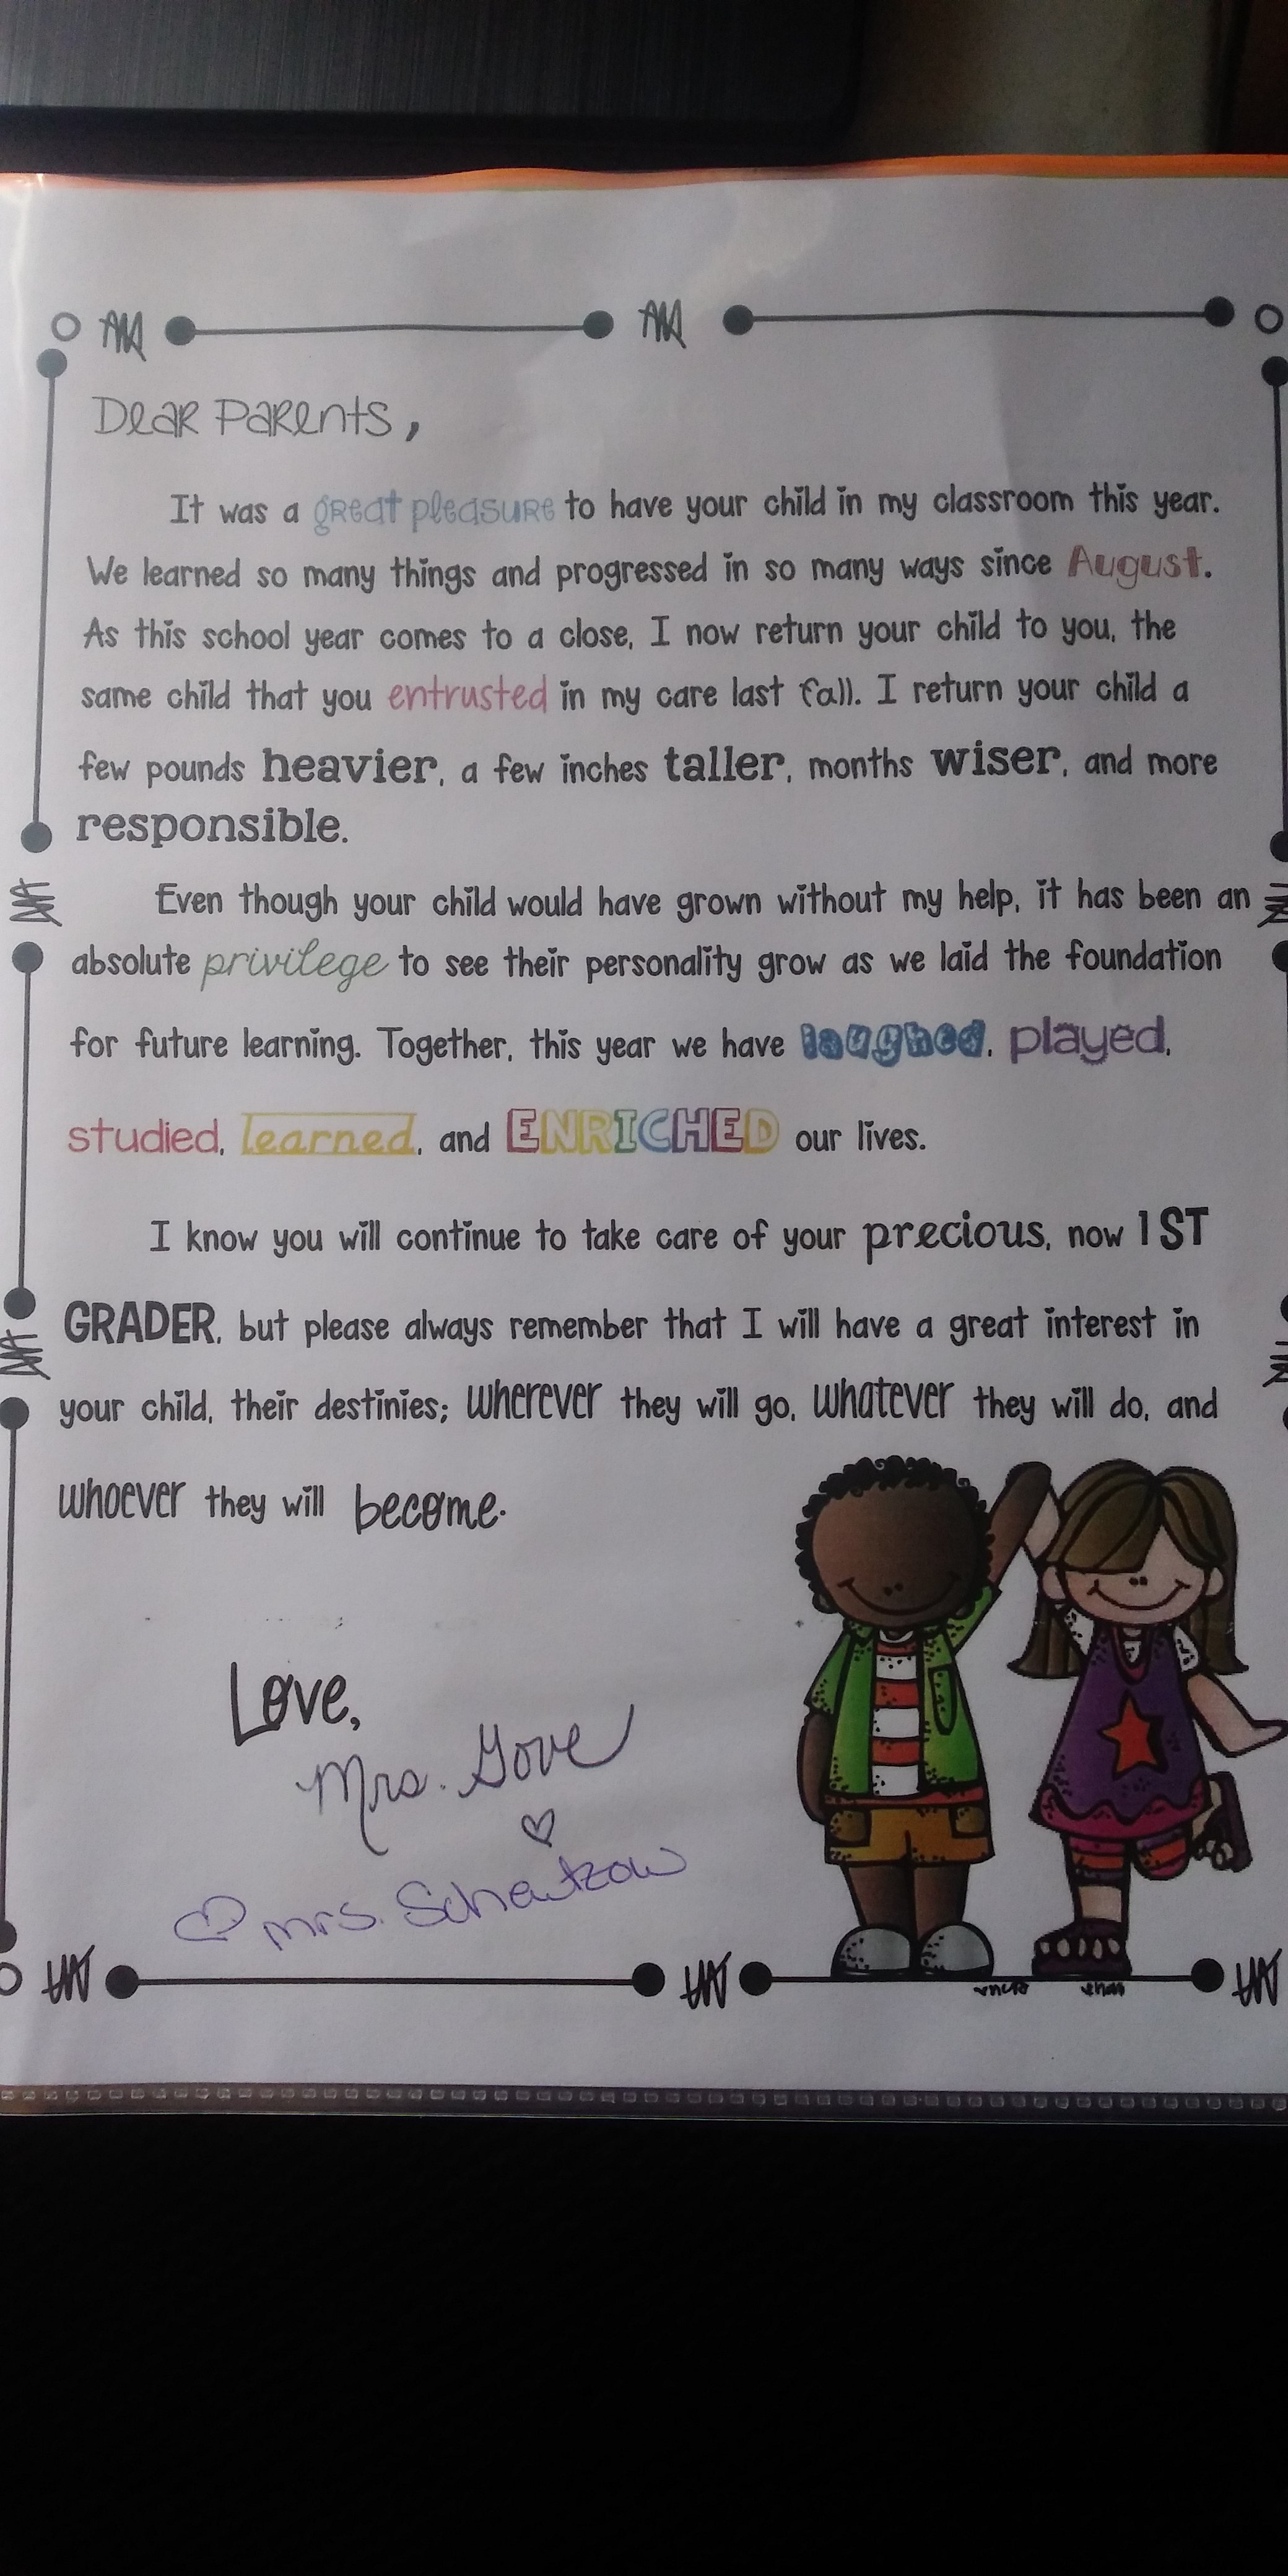 Dear Parents,
It was a great pleasure to have your child in my classroom this year.
We learned so many things and progressed in so many ways since August.
As this school year comes to a close, I now return your child to you, the
same child that you entrusted in my care last fall. I return your child a
few pounds heavier, a few inches taller, months wiser, and more
responsible.
Even though your child would have grown without my help, it has been an
absolute privilege to see their personality grow as we laid the foundation
for future learning. Together, this year we have laughed, played,
studied, learned, and ENRICHED our lives.
I know you will continue to take care of your precious, now 1ST
GRADER, but please always remember that I will have a great interest in
your child, their destinies; wherever they will go, whatever they will do, and
whoever they will become.
Love,
Mrs. Gove
Mrs.